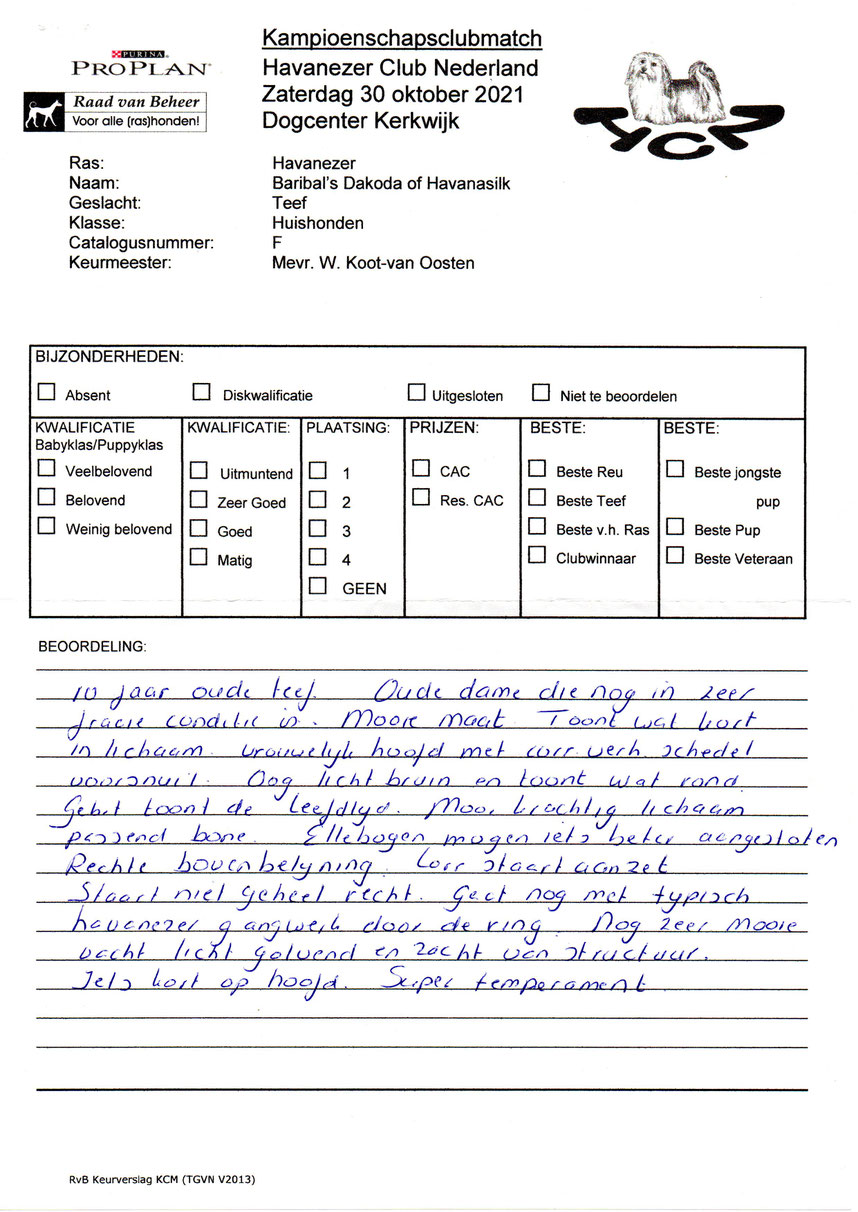 Kampioenschapsclubmatch
PURINA
PROPLAN
Havanezer Club Nederland
Raad van Beheer
Zaterdag 30 oktober 2021
Voor alle (ras)honden!
Dogcenter Kerkwijk
HCN
Ras: Havanezer
Naam: Baribal's Dakoda of Havanasilk
Geslacht: Teef
Klasse: Huishonden
Catalogusnummer: F
Keurmeester: Mevr. W. Koot-van Oosten
BIJZONDERHEDEN:
Absent Diskwalificatie Uitgesloten Niet te beoordelen
KWALIFICATIE KWALIFICATIE: PLAATSING: PRIJZEN: BESTE: BESTE:
Babyklas/Puppyklas
Veelbelovend Uitmuntend 1 CAC Beste Reu Beste jongste
Belovend Zeer Goed 2 Res. CAC Beste Teef pup
Weinig belovend Goed 3 Beste v.h. Ras Beste Pup
Matig 4 Clubwinnaar Beste Veteraan
GEEN
BEOORDELING:
10 jaar oude teef. Oude dame die nog in zeer
fraaie conditie is. Mooie maat Toont wat kort
in lichaam. vrouwelijk hoofd met corr. verh. schedel
voorsnuit. Oog licht bruin en toont wat rond.
Gebit toont de leeftijd. Mooi krachtig lichaam
passend bone. Ellebogen mogen iets beter aangesloten
Rechte bovenbelijning. Corr staart aanzet
Staart niet geheel recht. Gaat nog met typisch
havanezer gangwerk door de ring. Nog zeer mooie
vacht licht golvend en zacht van structuur.
Iets kort op hoofd. Super temperament
RvB Keurverslag KCM (TGVN V2013)